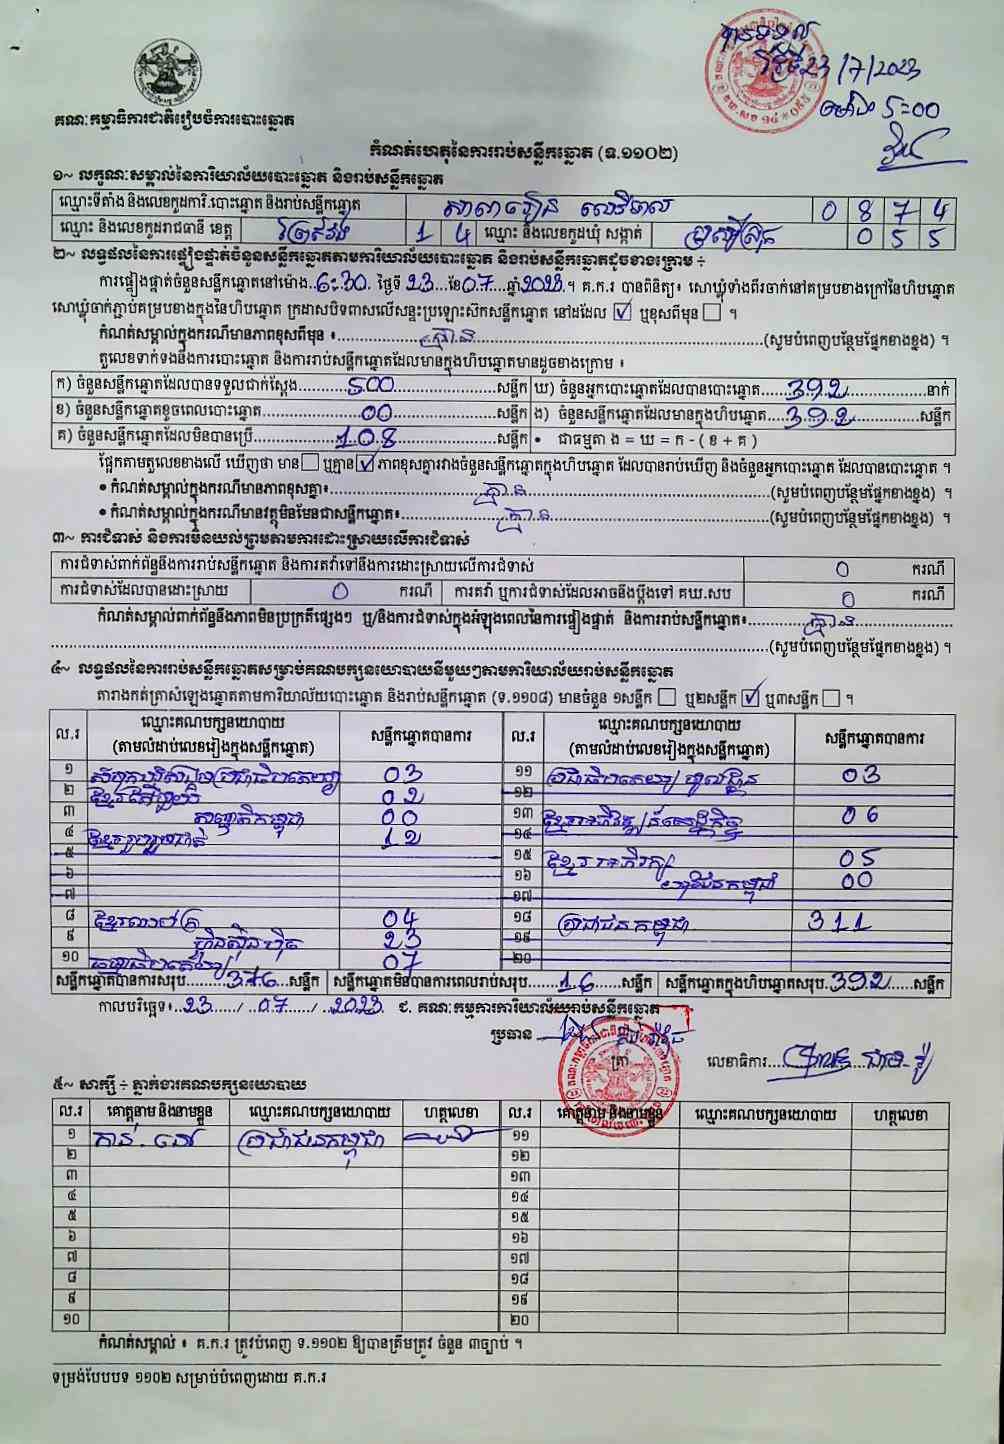 បានទទួល
ថ្ងៃទី23/7/2023
ម៉ោង 5:00
គណៈកម្មាធិការជាតិរៀបចំការបោះឆ្នោត
កំណត់ហេតុនៃការរាប់សន្លឹកឆ្នោត (ទ.១១០២)
១~ លក្ខណៈសម្គាល់នៃការិយាល័យបោះឆ្នោត និងរាប់សន្លឹកឆ្នោត
ឈ្មោះទីតាំង និងលេខកូដការិ.បោះឆ្នោត និងរាប់សន្លឹកឆ្នោត សាលារៀន 0 8 7 4
ឈ្មោះ និងលេខកូដរាជធានី ខេត្ត ព្រៃវែង 1 4 ឈ្មោះ និងលេខកូដឃុំ សង្កាត់ 0 5 5
២~ លទ្ធផលនៃការផ្ទៀងផ្ទាត់ចំនួនសន្លឹកឆ្នោតតាមការិយាល័យបោះឆ្នោត និងរាប់សន្លឹកឆ្នោតដូចខាងក្រោម ÷
ការផ្ទៀងផ្ទាត់ចំនួនសន្លឹកឆ្នោតនៅម៉ោង..6:30. ថ្ងៃទី 23...ខែ07....ឆ្នាំ2023.។ គ.ក.រ បានពិនិត្យ៖ សោឃ្លុំទាំងពីរចាក់នៅគម្របខាងក្រៅនៃហិបឆ្នោត
សោឃ្លុំចាក់ភ្ជាប់គម្របខាងក្នុងនៃហិបឆ្នោត ក្រដាសបិទពាសលើសន្ទះប្រឡោះស៊កសន្លឹកឆ្នោត នៅដដែល ☑ ឬខុសពីមុន ☐ ។
កំណត់សម្គាល់ក្នុងករណីមានភាពខុសពីមុន ៖ គ្មាន (សូមបំពេញបន្ថែមផ្នែកខាងខ្នង) ។
តួលេខទាក់ទងនឹងការបោះឆ្នោត និងការរាប់សន្លឹកឆ្នោតដែលមានក្នុងហិបឆ្នោតមានដូចខាងក្រោម ៖
ក) ចំនួនសន្លឹកឆ្នោតដែលបានទទួលជាក់ស្តែង 500 សន្លឹក ឃ) ចំនួនអ្នកបោះឆ្នោតដែលបានបោះឆ្នោត 392 នាក់
ខ) ចំនួនសន្លឹកឆ្នោតខូចពេលបោះឆ្នោត 00 សន្លឹក ង) ចំនួនសន្លឹកឆ្នោតដែលមានក្នុងហិបឆ្នោត 392 សន្លឹក
គ) ចំនួនសន្លឹកឆ្នោតដែលមិនបានប្រើ 108 សន្លឹក • ជាធម្មតា ង = ឃ = ក - ( ខ + គ )
ផ្អែកតាមតួលេខខាងលើ ឃើញថា មាន ☐ ឬគ្មាន ☑ ភាពខុសគ្នារវាងចំនួនសន្លឹកឆ្នោតក្នុងហិបឆ្នោត ដែលបានរាប់ឃើញ និងចំនួនអ្នកបោះឆ្នោត ដែលបានបោះឆ្នោត ។
• កំណត់សម្គាល់ក្នុងករណីមានភាពខុសគ្នា៖ គ្មាន (សូមបំពេញបន្ថែមផ្នែកខាងខ្នង) ។
• កំណត់សម្គាល់ក្នុងករណីមានវត្ថុមិនមែនជាសន្លឹកឆ្នោត៖ គ្មាន (សូមបំពេញបន្ថែមផ្នែកខាងខ្នង) ។
៣~ ការជំទាស់ និងការមិនយល់ព្រមតាមការដោះស្រាយលើការជំទាស់
ការជំទាស់ពាក់ព័ន្ធនឹងការរាប់សន្លឹកឆ្នោត និងការតវ៉ាទៅនឹងការដោះស្រាយលើការជំទាស់ 0 ករណី
ការជំទាស់ដែលបានដោះស្រាយ 0 ករណី ការតវ៉ា ឬការជំទាស់ដែលអាចនឹងប្តឹងទៅ គឃ.សប 0 ករណី
កំណត់សម្គាល់ពាក់ព័ន្ធនឹងភាពមិនប្រក្រតីផ្សេងៗ ឬ/និងការជំទាស់ក្នុងអំឡុងពេលនៃការផ្ទៀងផ្ទាត់ និងការរាប់សន្លឹកឆ្នោត៖ គ្មាន
(សូមបំពេញបន្ថែមផ្នែកខាងខ្នង) ។
៤~ លទ្ធផលនៃការរាប់សន្លឹកឆ្នោតសម្រាប់គណបក្សនយោបាយនីមួយៗតាមការិយាល័យរាប់សន្លឹកឆ្នោត
តារាងកត់ត្រាសំឡេងឆ្នោតតាមការិយាល័យបោះឆ្នោត និងរាប់សន្លឹកឆ្នោត (ទ.១១០៨) មានចំនួន ១សន្លឹក ☐ ឬ២សន្លឹក ☑ ឬ៣សន្លឹក ☐ ។
ល.រ ឈ្មោះគណបក្សនយោបាយ (តាមលំដាប់លេខរៀងក្នុងសន្លឹកឆ្នោត) សន្លឹកឆ្នោតបានការ ល.រ ឈ្មោះគណបក្សនយោបាយ (តាមលំដាប់លេខរៀងក្នុងសន្លឹកឆ្នោត) សន្លឹកឆ្នោតបានការ
១ 03 ១១ ប្រជាធិបតេយ្យ មូលដ្ឋាន 03
២ 02 ១២
៣ សញ្ជាតិកម្ពុជា 00 ១៣ ខ្មែរអភិវឌ្ឍន៍សេដ្ឋកិច្ច 06
៤ ខ្មែររួបរួមជាតិ 12 ១៤
៥ ១៥ ខ្មែរអភិរក្ស 05
៦ ១៦ យុវជនកម្ពុជា 00
៧ ១៧
៨ 04 ១៨ ប្រជាជនកម្ពុជា 311
៩ ហ្វ៊ុនស៊ិនប៉ិច 23 ១៩
១០ 07 ២០
សន្លឹកឆ្នោតបានការសរុប 376 សន្លឹក សន្លឹកឆ្នោតមិនបានការពេលរាប់សរុប 16 សន្លឹក សន្លឹកឆ្នោតក្នុងហិបឆ្នោតសរុប 392 សន្លឹក
កាលបរិច្ឆេទ៖ 23 / 07 / 2023 ជ. គណៈកម្មការការិយាល័យរាប់សន្លឹកឆ្នោត
ប្រធាន
ត្រា
លេខាធិការ
៥~ សាក្សី ÷ ភ្នាក់ងារគណបក្សនយោបាយ
ល.រ គោត្តនាម និងនាមខ្លួន ឈ្មោះគណបក្សនយោបាយ ហត្ថលេខា ល.រ គោត្តនាម និងនាមខ្លួន ឈ្មោះគណបក្សនយោបាយ ហត្ថលេខា
១ កាន់. នៅ ប្រជាជនកម្ពុជា ១១
២ ១២
៣ ១៣
៤ ១៤
៥ ១៥
៦ ១៦
៧ ១៧
៨ ១៨
៩ ១៩
១០ ២០
កំណត់សម្គាល់ ៖ គ.ក.រ ត្រូវបំពេញ ទ.១១០២ ឱ្យបានត្រឹមត្រូវ ចំនួន ៣ច្បាប់ ។
ទម្រង់បែបបទ ១១០២ សម្រាប់បំពេញដោយ គ.ក.រ